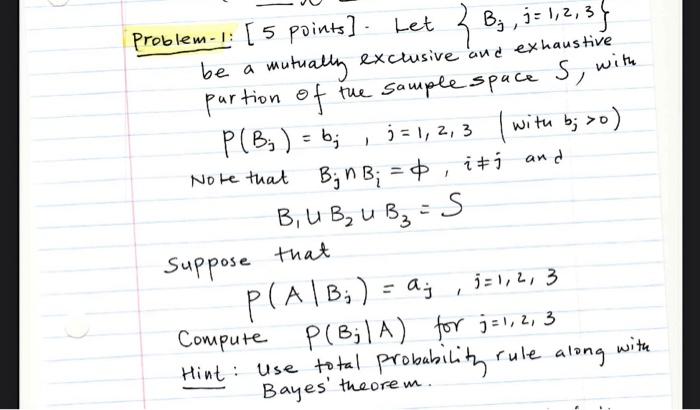 Problem-1: [5 points]. Let { Bj, j=1,2,3}
be a mutually exclusive and exhaustive
partion of the sample space S, with
P(Bj) = bj , j=1, 2, 3 (with bj >0)
Note that Bj∩Bi = ϕ, i≠j and
B1 U B2 U B3 = S
Suppose that
P(A|Bj) = aj , j=1, 2, 3
Compute P(Bj|A) for j=1, 2, 3
Hint: Use total probability rule along with
Bayes' theorem.